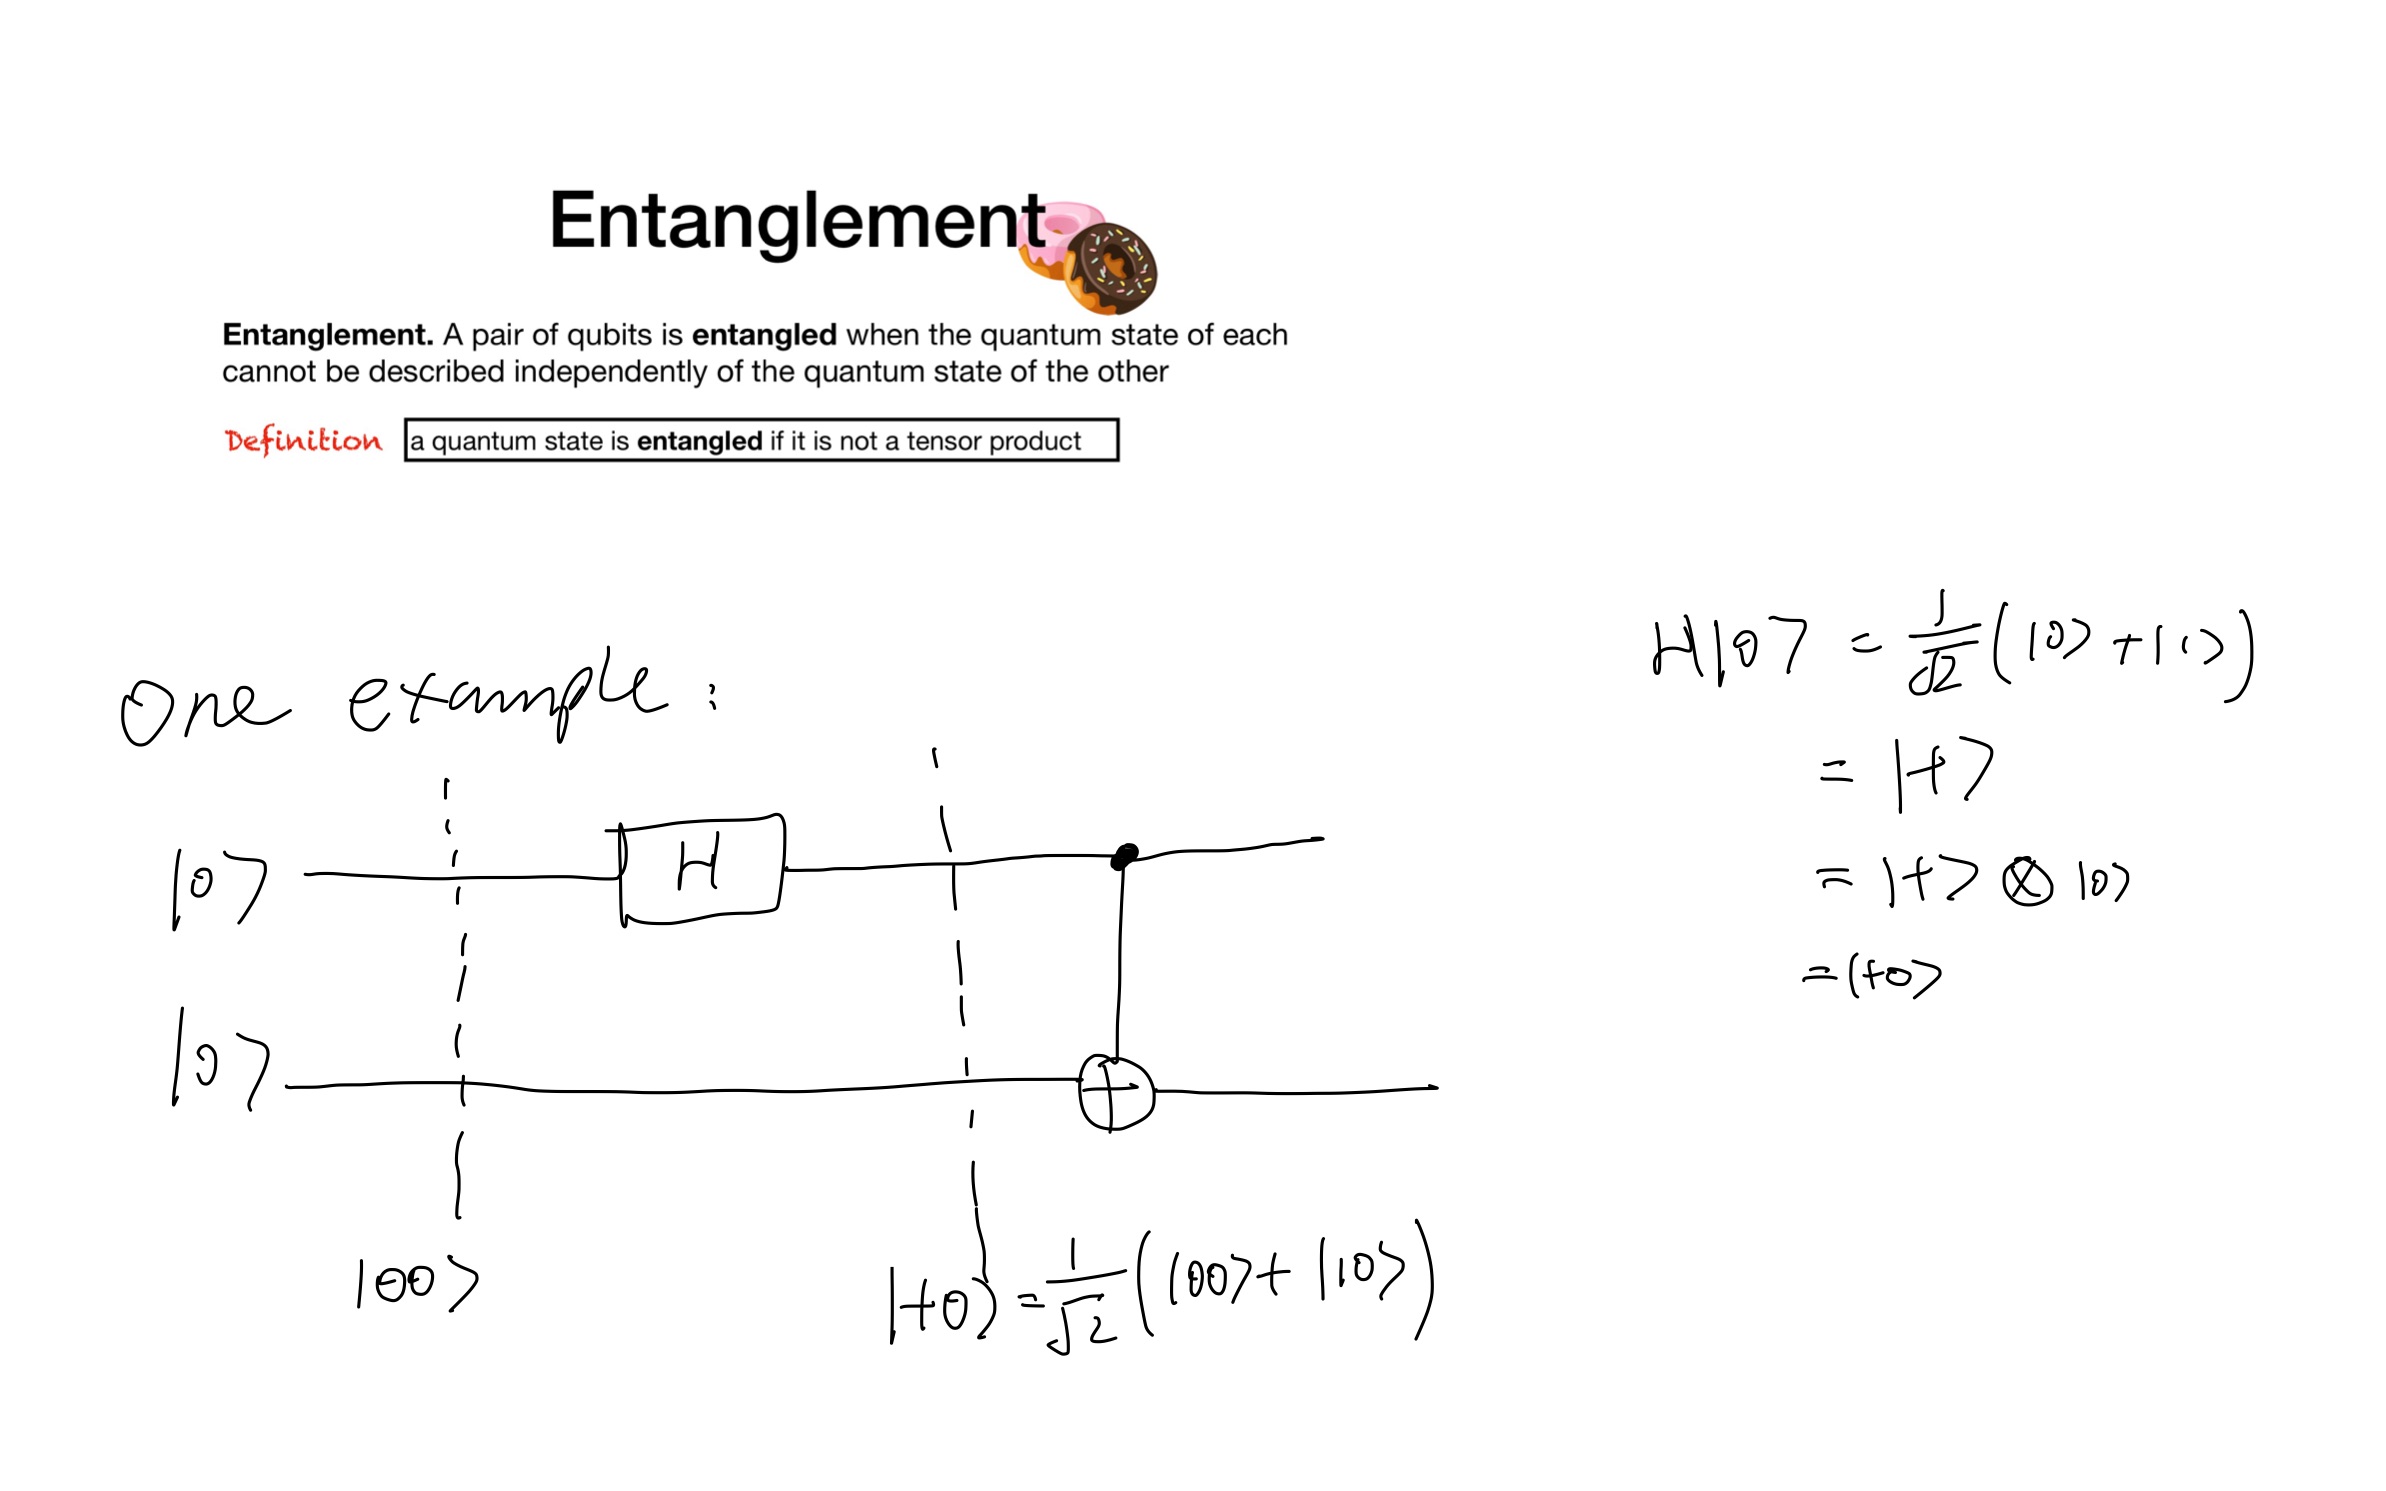 Entanglement
Entanglement. A pair of qubits is entangled when the quantum state of each
cannot be described independently of the quantum state of the other
Definition a quantum state is entangled if it is not a tensor product
One example :
H|0> = 1/√2 (|0> + |1>)
= |+>
= |+> ⊗ |0>
= |+0>
|0> H
|0>
|00>
|+0> = 1/√2 (|00> + |10>)